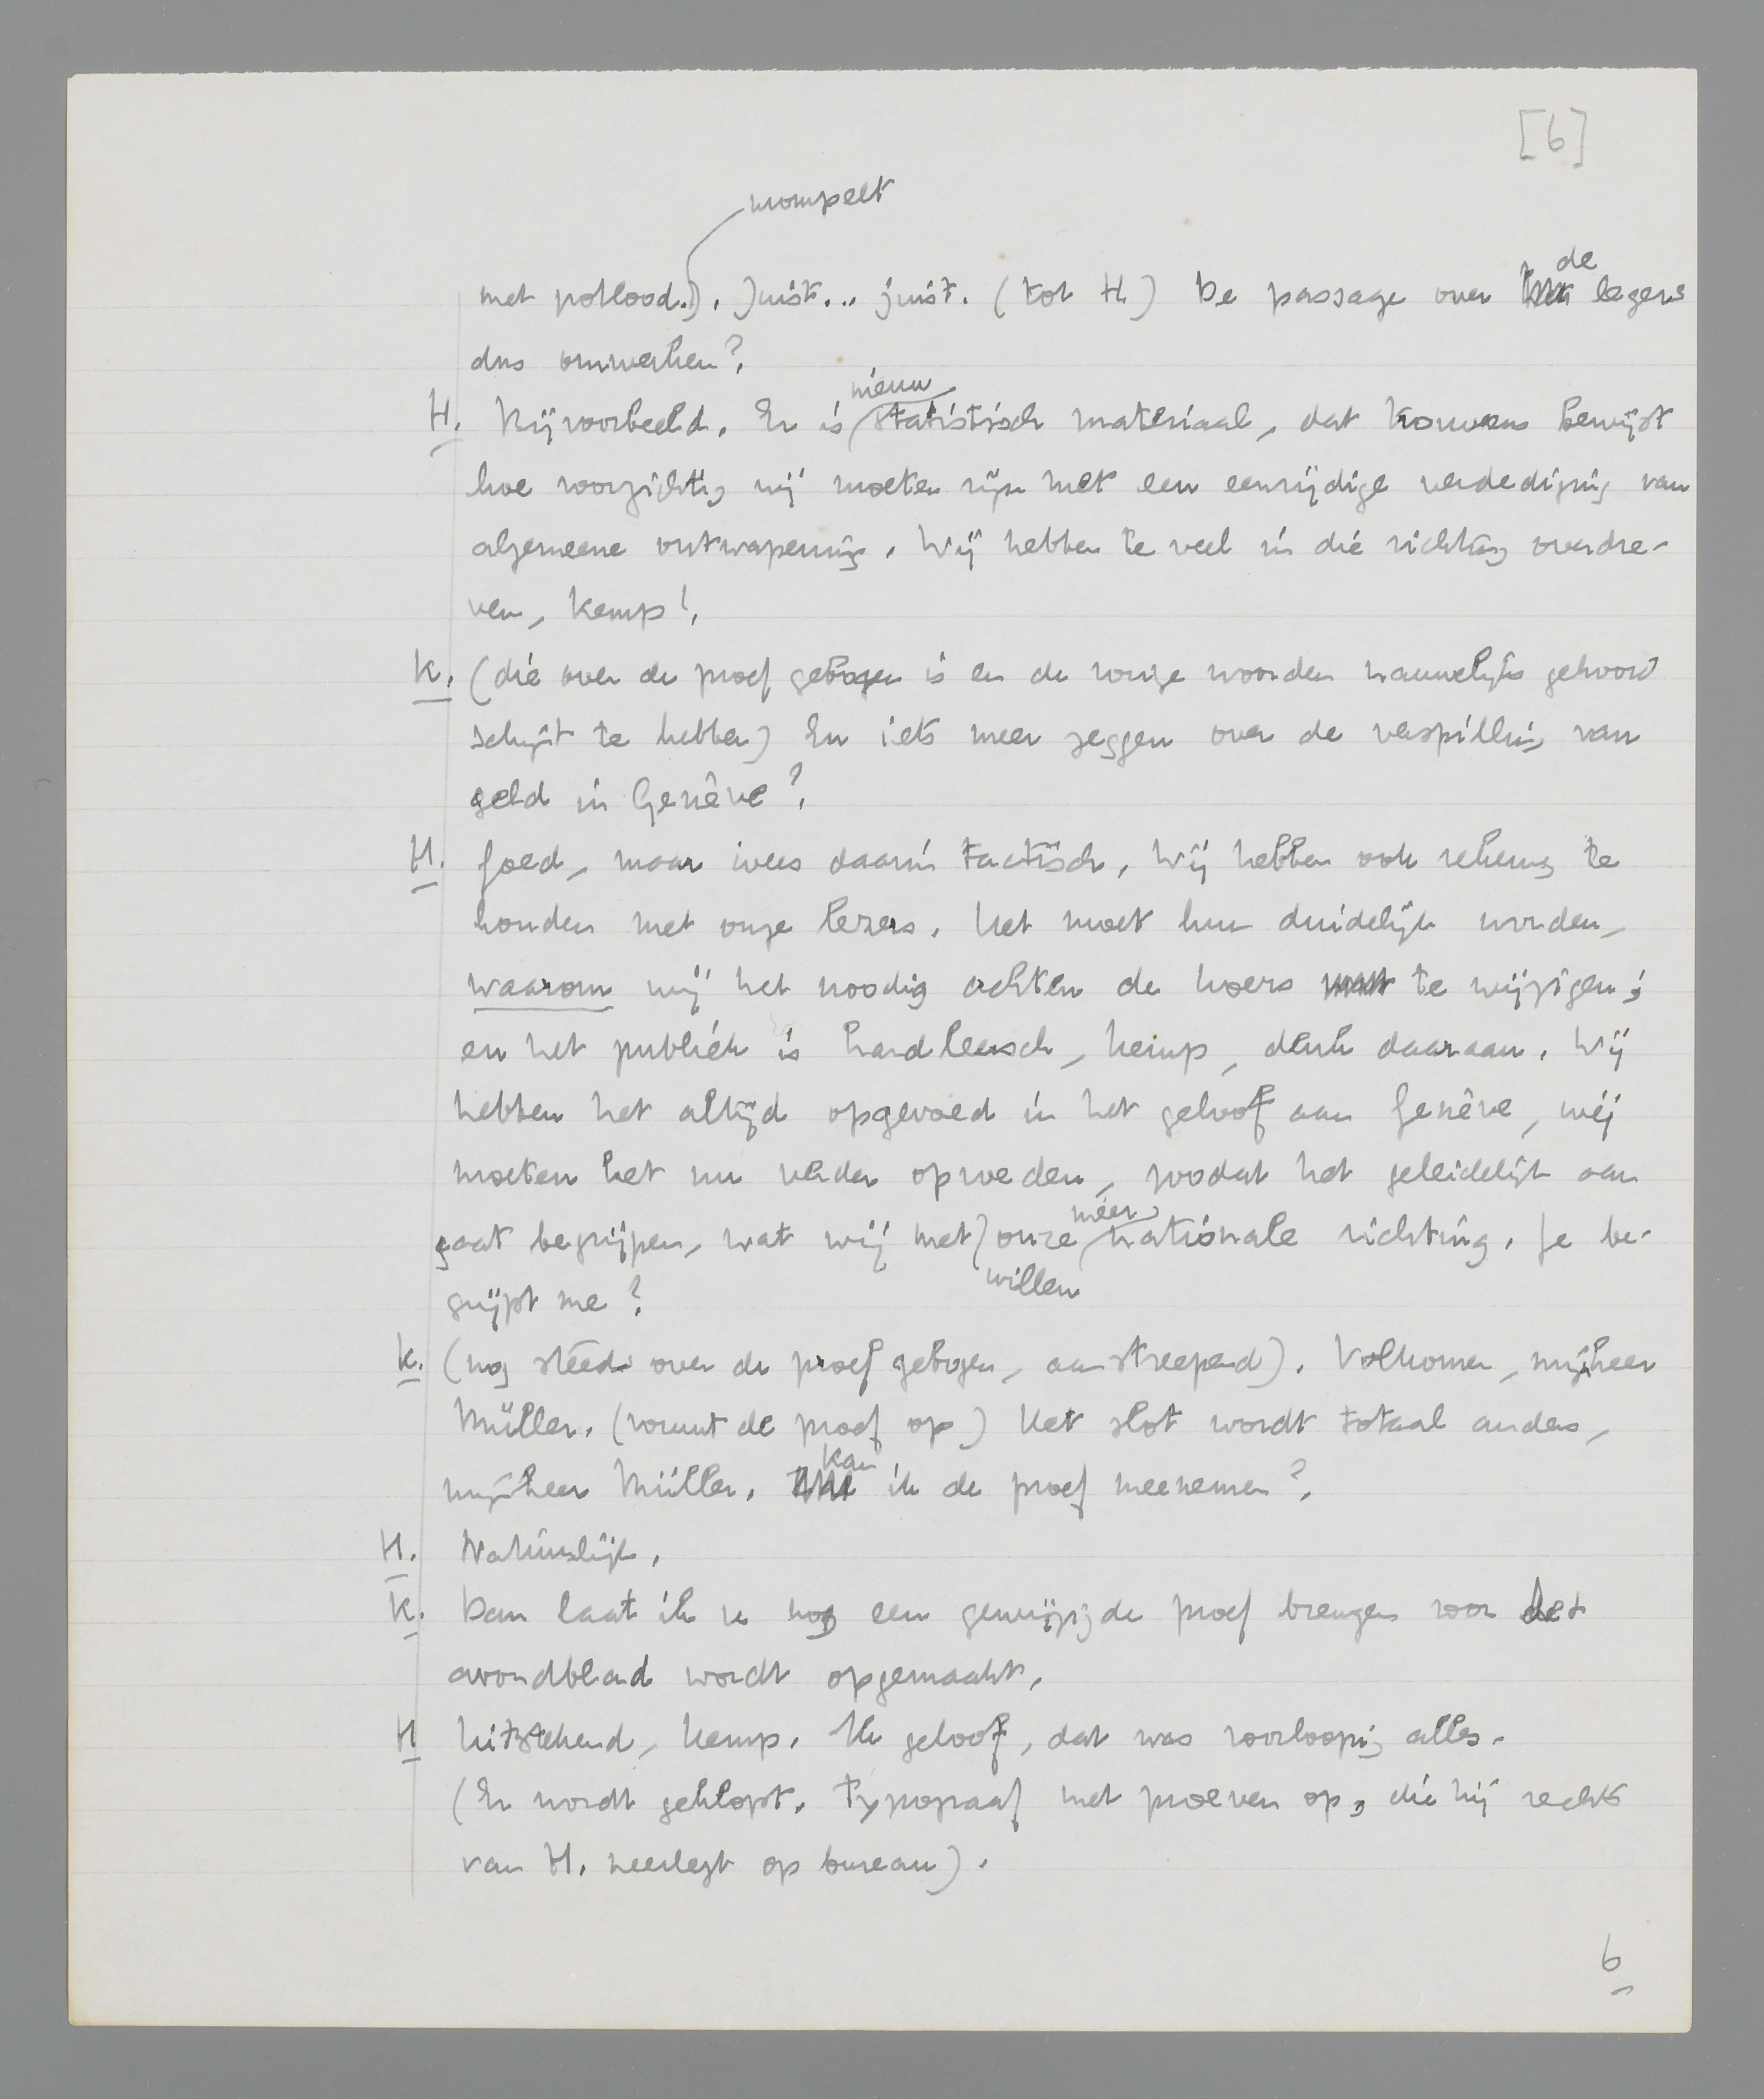 [6]
mompelt
met potlood.). Juist... juist. (tot H) De passage over de legers
dus omwerken?
H. Bijvoorbeeld. Er is nieuw statistisch materiaal, dat trouwens bewijst
hoe voorzichtig wij moeten zijn met een eenzijdige verdediging van
algemeene ontwapening. Wij hebben te veel in die richting overdre-
ven, Kemp!
K. (die over de proef gebogen is en de vorige woorden nauwelijks gehoord
schijnt te hebben) En iets meer zeggen over de verspilling van
geld in Genève?
H. Goed, maar wees daarin tactisch. Wij hebben ook rekening te
houden met onze lezers. Het moet hun duidelijk worden,
waarom wij het noodig achten de koers te wijzigen;
en het publiek is hardleersch, Kemp, denk daaraan. Wij
hebben het altijd opgevoed in het geloof aan Genève, wij
moeten het nu verder opvoeden, zoodat het geleidelijk aan
gaat begrijpen, wat wij met onze méér nationale richting willen. Je be-
grijpt me?
K. (nog steeds over de proef gebogen, aanstreepend). Volkomen, mijnheer
Müller. (neemt de proef op) Het slot wordt totaal anders,
mijnheer Müller. Kan ik de proef meenemen?
H. Natuurlijk.
K. Dan laat ik u nog een gewijzigde proef brengen voor het
avondblad wordt opgemaakt.
H Uitstekend, Kemp. Ik geloof, dat was voorloopig alles.
(Er wordt geklopt. Typograaf met proeven op, die hij rechts
van H. neerlegt op bureau).
6